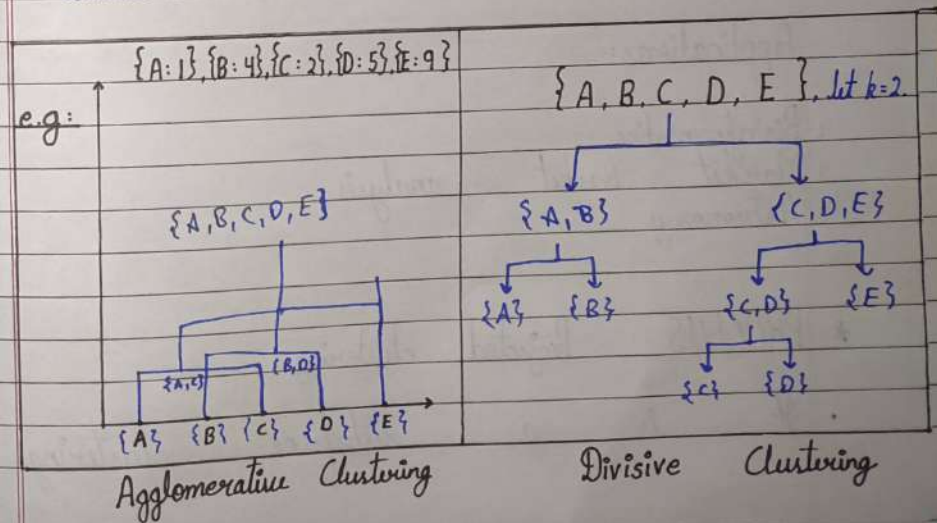 {A:1},{B:4},{C:2},{D:5},{E:9}
e.g:
{A,B,C,D,E}
{A,C}
{B,D}
{A} {B} {C} {D} {E}
Agglomerative Clustering
{A, B, C, D, E}, let k=2.
{A, B} {C, D, E}
{A} {B} {C,D} {E}
{C} {D}
Divisive Clustering